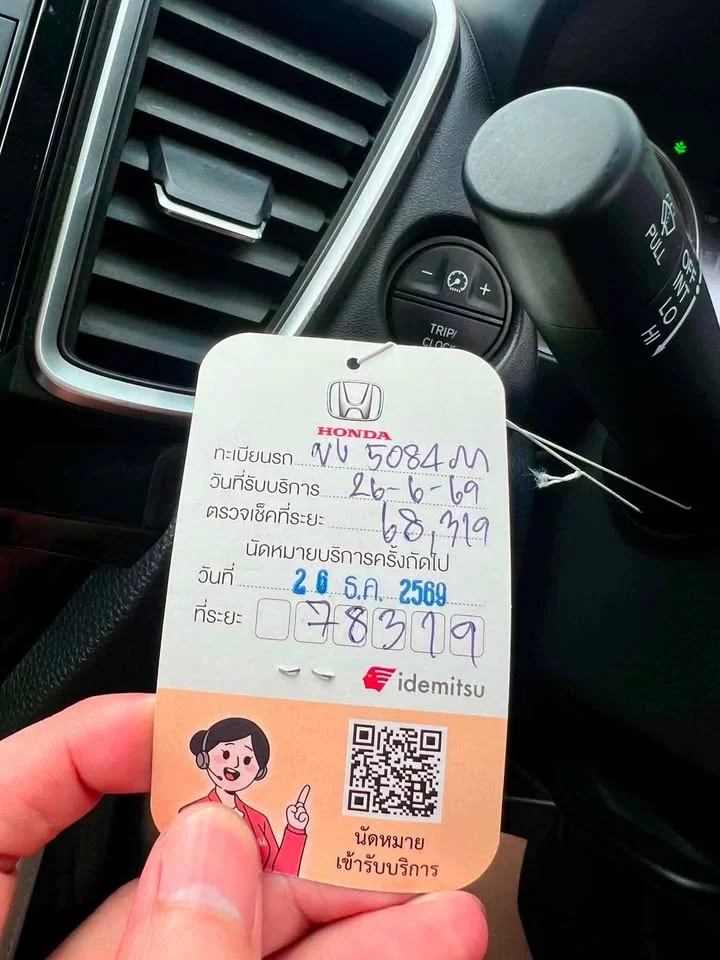 PULL
OFF
INT
LO
HI
− +
TRIP/
CLOCK
HONDA
ทะเบียนรถ 5084
วันที่รับบริการ 26-6-69
ตรวจเช็คที่ระยะ 68,319
นัดหมายบริการครั้งถัดไป
วันที่ 26 ธ.ค. 2569
ที่ระยะ 78319
idemitsu
นัดหมาย
เข้ารับบริการ